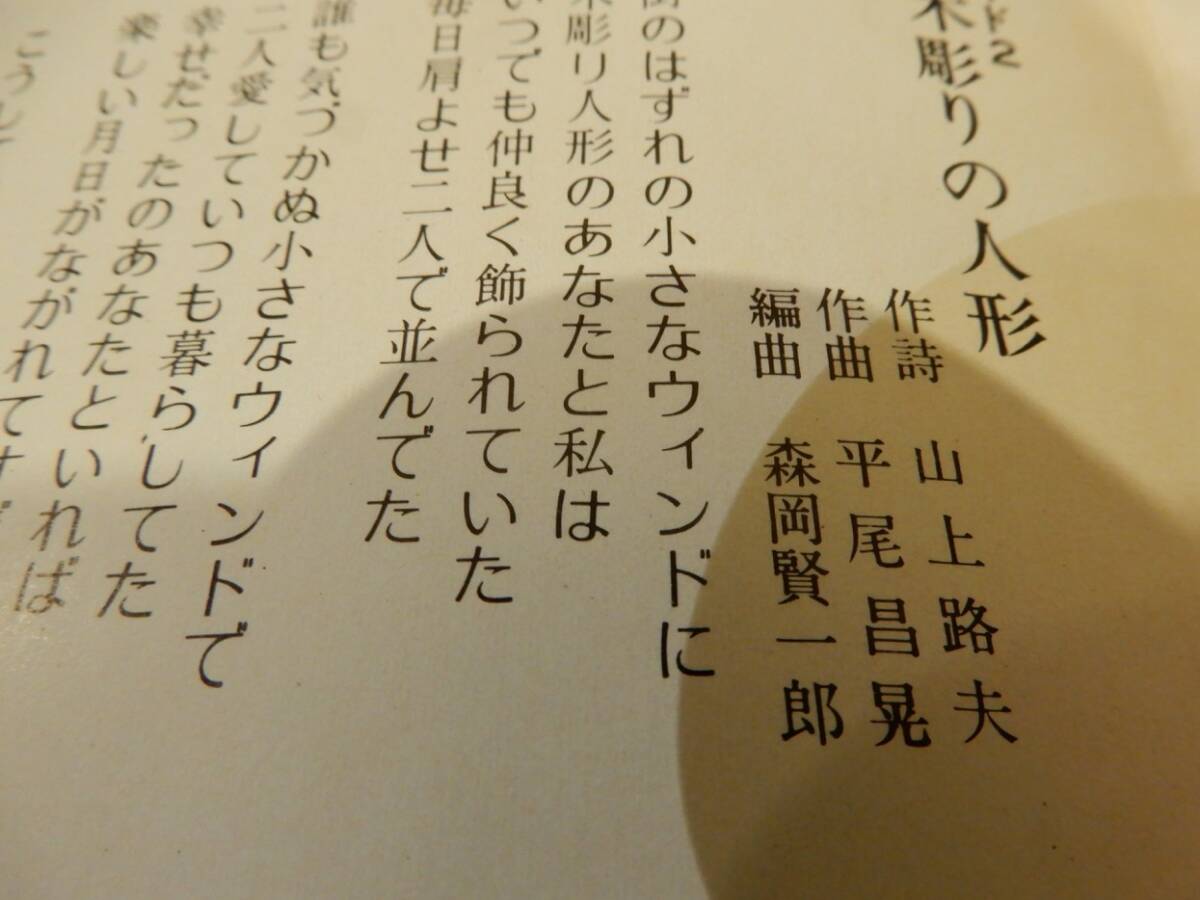 ド2
木彫りの人形
作詩 山上路夫
作曲 平尾昌晃
編曲 森岡賢一郎
街のはずれの小さなウィンドに
木彫り人形のあなたと私は
いつでも仲良く飾られていた
毎日肩よせ二人で並んでた
誰も気づかぬ小さなウィンドで
二人愛していつも暮らしてた
幸せだったのあなたといれば
楽しい月日がながれて
こうして